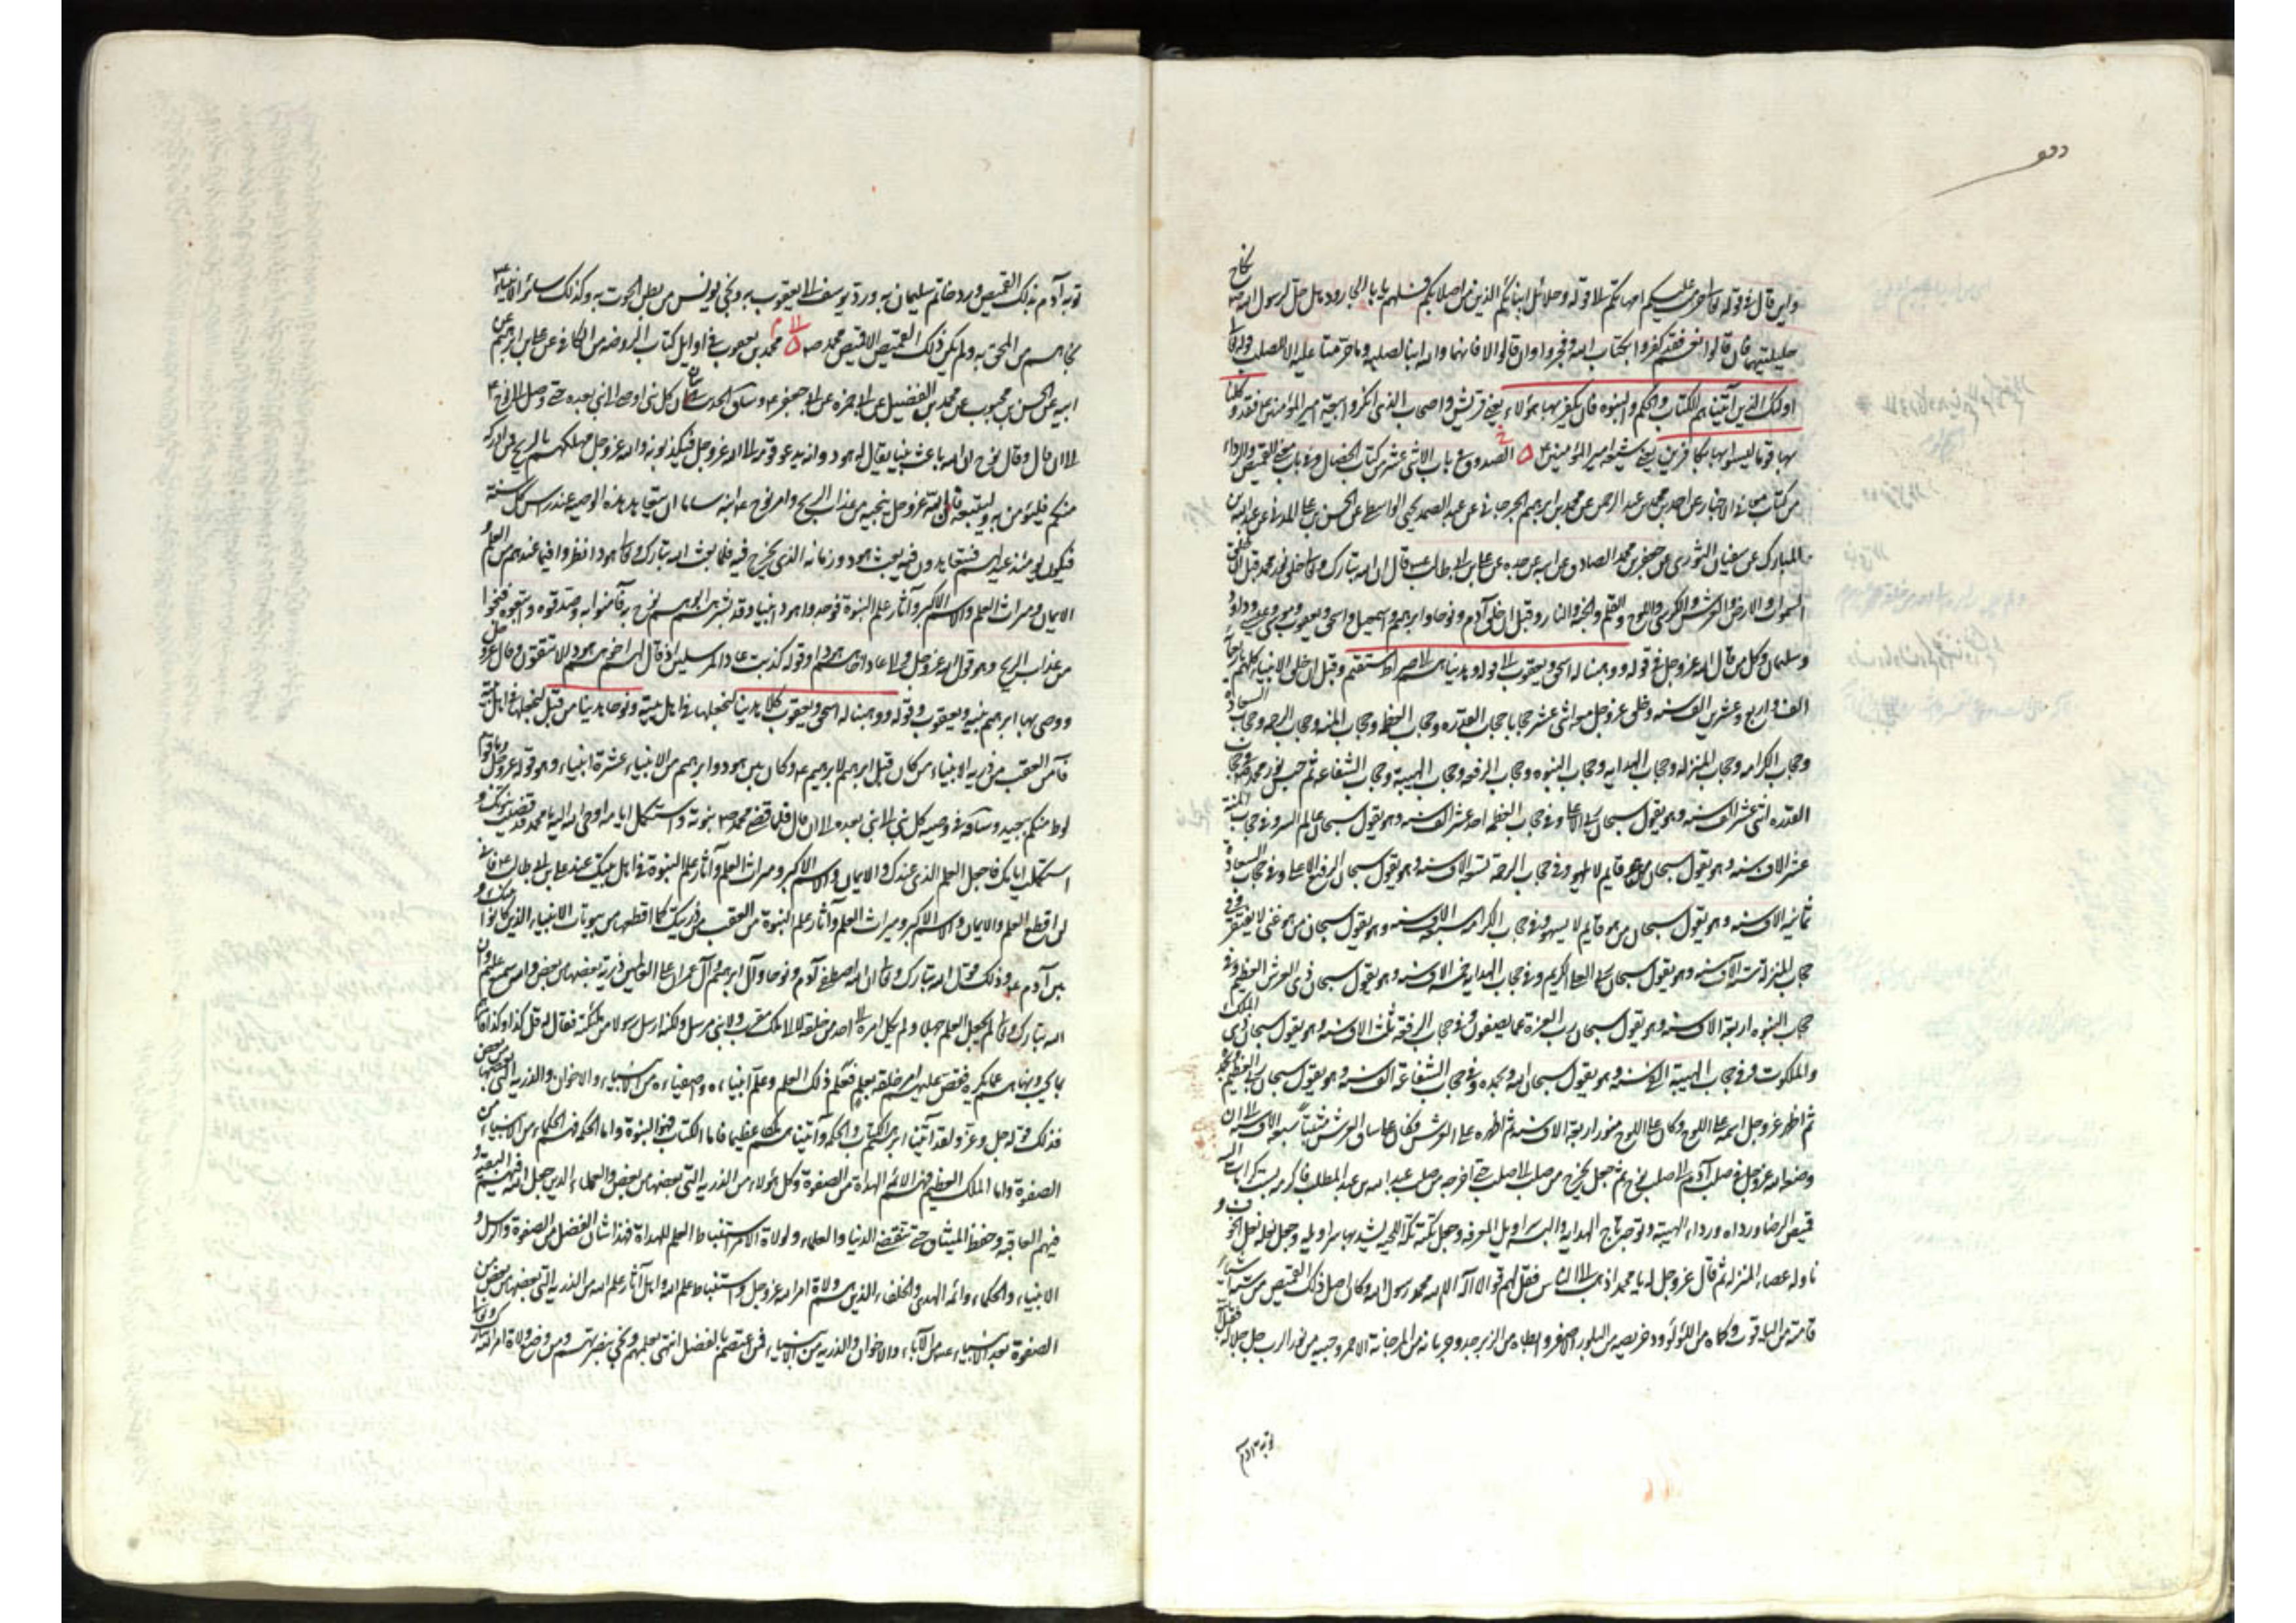 واين قال في قوله حرمت عليكم امهاتكم الى قوله وحلائل ابنائكم الذين من اصلابكم فسلهم يا ابا الجارود هل حل لرسول الله نكاح
حليلتيهما فان قالوا نعم فقد كفروا بكتاب الله وفجروا وان قالوا لا فانهما والله ابنا لصلبه وما حرمتا عليه الا للصلب قوله تعا
اولئك الذين آتيناهم الكتاب والحكم والنبوه فان يكفر بها هؤلاء يعني قريش واصحاب الذي انكروا بيعة امير المؤمنين فقد وكلنا
بها قوما ليسوا بها بكافرين يعني شيعه امير المؤمنين الصدوق في باب الاثني عشر من كتاب الخصال
من كتاب معاني الاخبار عن احمد بن محمد بن عبد الرحمن عن محمد بن ابرهيم الجرجاني عن عبد الصمد يحيى الواسطي عن الحسن بن علي المدني عن عبد الله بن
المبارك عن سفيان الثوري عن جعفر بن محمد الصادق عن ابيه عن جده عن علي بن ابيطالب قال ان الله تبارك وتعا خلق نور محمد قبل ان خلق
السموات والارض والعرش والكرسي واللوح والقلم والجنة والنار وقبل ان خلق آدم ونوحا وابرهيم واسمعيل واسحق ويعقوب وموسى وعيسى وداود
وسليمان وكل من قال الله عز وجل في قوله ووهبنا له اسحق ويعقوب الى قوله وهديناهم الى صراط مستقيم وقبل ان خلق الانبياء كلهم
الف واربع وعشرين الف سنه وخلق عز وجل معه اثنى عشر حجابا حجاب القدره وحجاب العظمه وحجاب المنه وحجاب الرحمه وحجاب السعاده
وحجاب الكرامه وحجاب المنزله وحجاب الهدايه وحجاب النبوه وحجاب الرفعه وحجاب الهيبة وحجاب الشفاعه ثم حبس نور محمد في حجاب
القدره اثنى عشر الف سنه وهو يقول سبحان ربي الاعلى وفي حجاب العظمه احد عشر الف سنه وهو يقول سبحان عالم السر وفي حجاب المنة
عشر الاف سنه وهو يقول سبحان من هو قايم لا يلهو وفي حجاب الرحمة تسعة الاف سنه وهو يقول سبحان الرفيع الاعلى وفي حجاب السعادة
ثمانيه الاف سنه وهو يقول سبحان من هو قايم لا يسهو وفي حجاب الكرامه سبعة الاف سنه وهو يقول سبحان من هو غني لا يفتقر وفي
حجاب المنزله ستة الاف سنه وهو يقول سبحان ربي العلي الكريم وفي حجاب الهدايه خمسه الاف سنه وهو يقول سبحان ذي العرش العظيم وفي
حجاب النبوه اربعة الاف سنه وهو يقول سبحان رب العزة عما يصفون وفي حجاب الرفعة ثلثة الاف سنه وهو يقول سبحان ذي الملك
والملكوت وفي حجاب الهيبة الفي سنه وهو يقول سبحان الله وبحمده وفي حجاب الشفاعة الف سنه وهو يقول سبحان ربي العظيم وبحمده
ثم اظهر عز وجل اسمه على اللوح وكان على اللوح منورا اربعة الاف سنه ثم اظهره على العرش فكان على ساق العرش مثبتا سبعة الاف سنه الى ان
وضعه الله عز وجل في صلب آدم ثم جعل يخرج من صلب الى صلب حتى اخرجه من صلب عبد الله بن عبد المطلب فاكرمه بست كرامات البسه
قميص الرضا ورداه ورداء الهيبة وتوجه تاج الهدايه والبسه سراويل المعرفه وجعل تكته تكة المحبه يشد بها سراويله وجعل نعله نعل الخوف و
ناوله عصاء المنزله ثم قال عز وجل له يا محمد اذهب الى الناس فقل لهم قولوا لا اله الا الله محمد رسول الله وكان اصل ذلك القميص من ستة اشياء
قامته من الياقوت وكماه من اللؤلؤ ودخريصه من البلور الاصفر وابطاه من الزبرجد وجربانه من المرجانة الاحمر وجيبه من نور الرب جل جلاله فقبل الله
توبه آدم
توبه آدم بذلك القميص ورد خاتم سليمان به ورد يوسف الى يعقوب به ونجى يونس من بطن الحوت به وكذلك سائر الانبياء
نجاهم من المحن به ولم يكن ذلك القميص الا قميص محمد ص محمد بن يعقوب في اوايل كتاب الروضه من الكافي عن علي بن ابرهيم عن
ابيه عن الحسن بن محبوب عن محمد بن الفضيل عن ابي حمزه عن ابي جعفر وساق الحديث
الى ان قال وقال نوح ان الله باعث نبيا يقال له هود وانه يدعو قومه الى الله عز وجل فيكذبونه والله عز وجل مهلكهم بالريح فمن ادركه
منكم فليؤمن به وليتبعه فان الله عز وجل ينجيه من عذاب الريح وامر نوح ابنه ساما ان يتعاهد هذه الوصية عند راس كل سنة
فيكون يومئذ عيدا لهم فيتعاهدون فيه بعث هود وزمانه الذي يخرج فيه فلما بعث الله تبارك وتعا هودا نظروا فيما عندهم من العلم و
الايمان وميراث العلم والاسم الاكبر وآثار علم النبوة فوجدوا هودا نبيا وقد بشرهم ابوهم نوح به فآمنوا به وصدقوه واتبعوه فنجوا
من عذاب الريح وهو قول الله عز وجل والى عاد اخاهم هودا وقوله كذبت عاد المرسلين اذ قال لهم اخوهم هود الا تتقون وقال عز وجل
ووصى بها ابرهيم بنيه ويعقوب وقوله ووهبنا له اسحق ويعقوب كلا هدينا لنجعلها في اهل بيته ونوحا هدينا من قبل لنجعلها في اهل بيته
فآمن العقب من ذريه الانبياء من كان قبل ابرهيم لابرهيم وكان بين هود وابرهيم من الانبياء عشرة انبياء وهو قوله عز وجل وما قوم
لوط منكم ببعيد وساقه في وصية كل نبي الى نبي بعده الى ان قال فلما قضى محمد ص نبوته واستكمل ايامه اوحى الله اليه يا محمد قد قضيت نبوتك و
استكملت ايامك فاجعل العلم الذي عندك والايمان والاسم الاكبر وميراث العلم وآثار علم النبوة في اهل بيتك عند علي بن ابي طالب فاني
لن اقطع العلم والايمان والاسم الاكبر وميراث العلم وآثار علم النبوة من العقب من ذريتك كما لم اقطعها من بيوتات الانبياء الذين كانوا بينك و
بين آدم وذلك قول الله تبارك وتعا ان الله اصطفى آدم ونوحا وآل ابرهيم وآل عمران على العالمين ذرية بعضها من بعض والله سميع عليم وان
الله تبارك وتعا لم يجعل العلم جهلا ولم يكل امره الى احد من خلقه لا الى ملك مقرب ولا نبي مرسل ولكنه ارسل رسولا من ملئكته فقال له قل كذا وكذا فامرهم
بما يحب ونهاهم عما يكره فقص عليهم امر خلقه بعلم فعلم ذلك العلم وعلم انبياءه واصفياءه من الانبياء والاخوان والذرية التي بعضها من بعض
فذلك قوله جل وعز ولقد آتينا آل ابرهيم الكتاب والحكمة وآتيناهم ملكا عظيما فاما الكتاب فهو النبوة واما الحكمة فهم الحكماء من الانبياء من
الصفوة واما الملك العظيم فهم الائمه الهداة من الصفوة وكل هؤلاء من الذرية التي بعضها من بعض والعلماء الذين جعل الله فيهم البقية و
فيهم العاقبة وحفظ الميثاق حتى تنقضي الدنيا والعلماء ولولاة الامر استنباط العلم وللهداة فهذا شان الفضل من الصفوة والرسل و
الانبياء والحكماء وائمه الهدى والخلفاء الذين هم ولاة امر الله عز وجل واستنباط علم الله واهل آثار علم الله من الذرية التي بعضها من بعض من
الصفوة بعد الانبياء من الآباء والاخوان والذرية من الانبياء فمن اعتصم بالفضل انتهى بعلمهم ونجى بنصرتهم ومن وضع ولاة امر الله تبارك وتعا